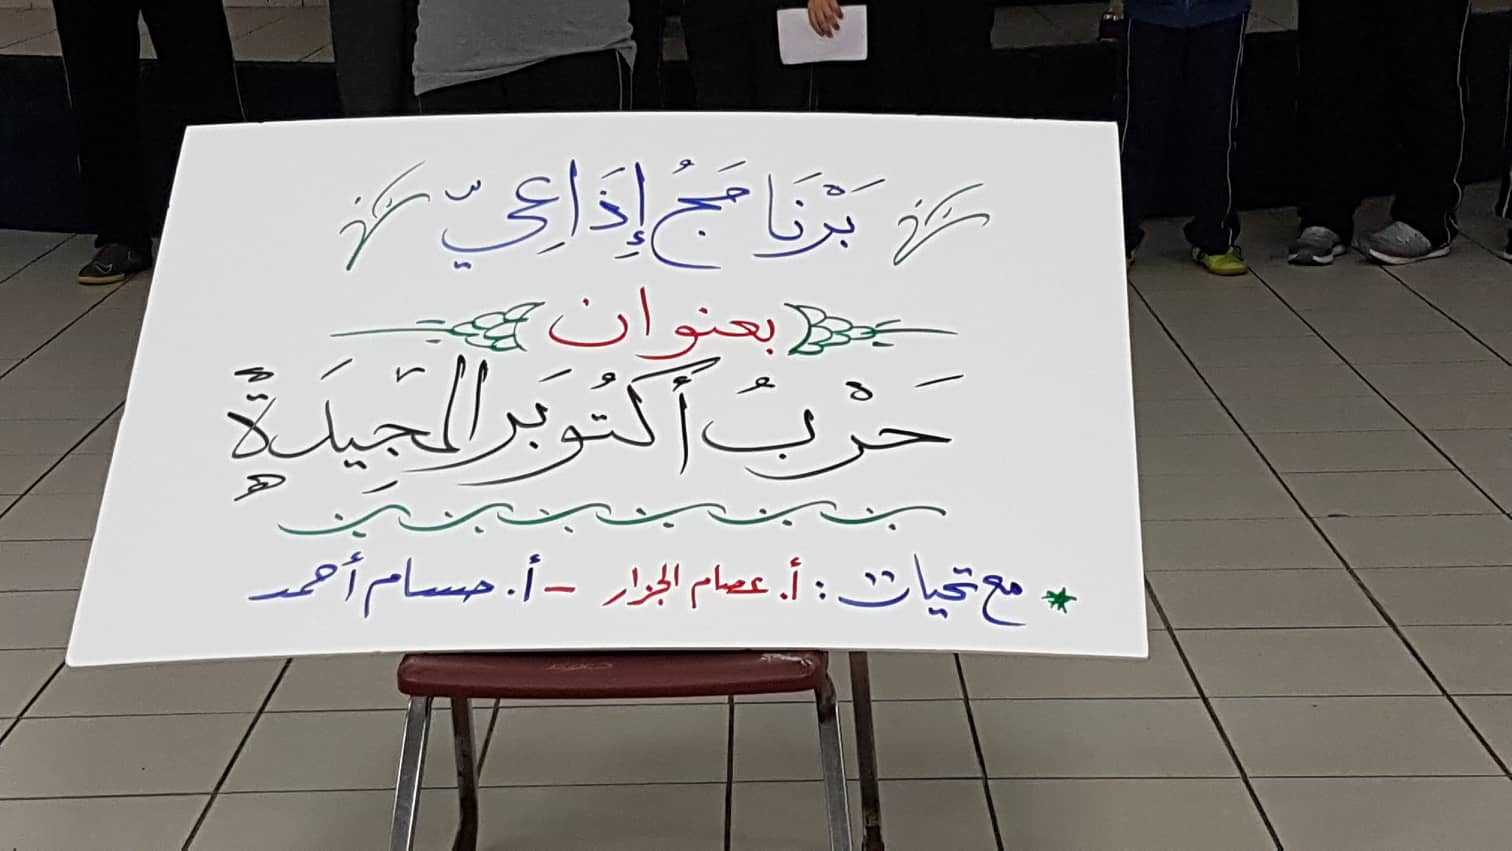 بَرْنَامَجُ إِذَاعِيّ
بعنوان
حَرْبُ أُكْتُوبَر المَجِيدَةِ
* مع تحيات : أ. عصام الجزار - أ. حسام أحمد